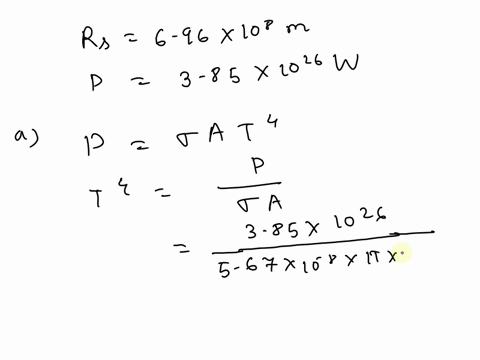 Rs = 6.96 × 10^8 m
P = 3.85 × 10^26 W
a) P = σ A T^4
T^4 = P / σ A
= 3.85 × 10^26 / 5.67 × 10^-8 × π ×